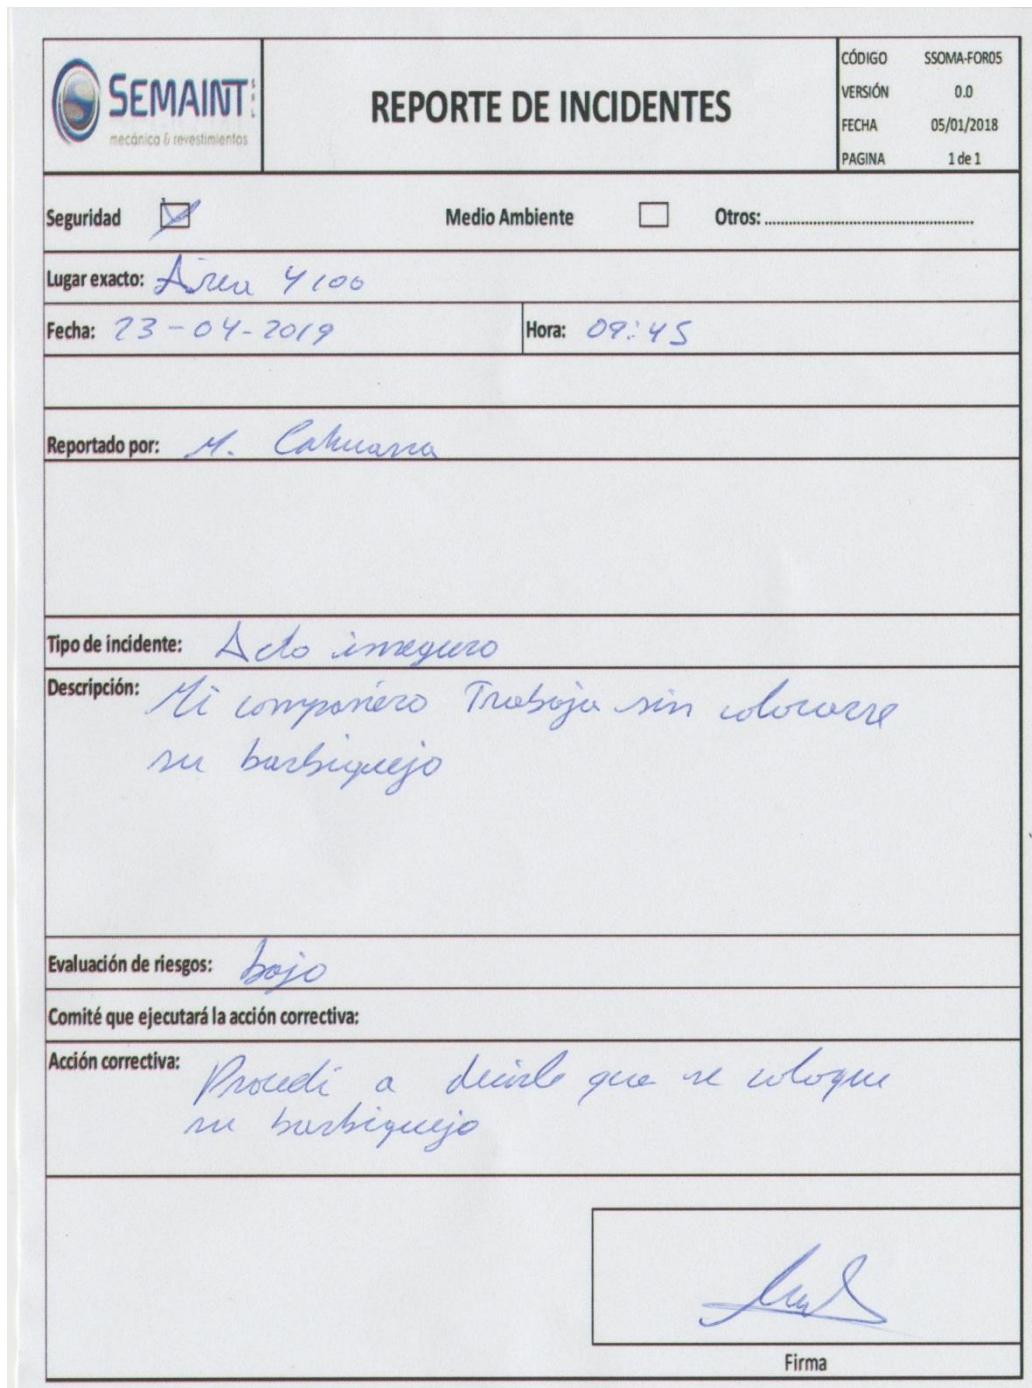 SEMAINT
mecánica & revestimientos
REPORTE DE INCIDENTES
CÓDIGO SSOMA-FOR05
VERSIÓN 0.0
FECHA 05/01/2018
PAGINA 1 de 1
Seguridad Medio Ambiente Otros: ................................................
Lugar exacto: Área 4100
Fecha: 23-04-2019 Hora: 09:45
Reportado por: M. Cahuana
Tipo de incidente: Acto inseguro
Descripción: Mi compañero Trabaja sin colocarse
su barbiquejo
Evaluación de riesgos: bajo
Comité que ejecutará la acción correctiva:
Acción correctiva: Procedí a decirle que se coloque
su barbiquejo
Firma